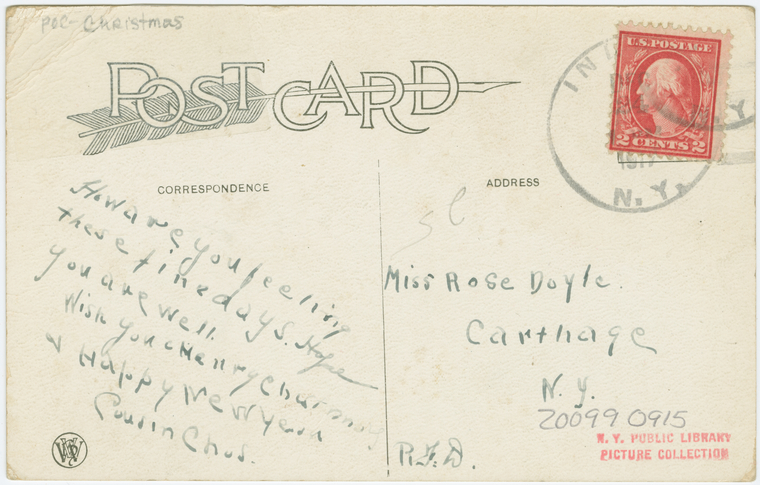 POC-Christmas
POST CARD
U.S. POSTAGE
2 CENTS 2
N.Y.
CORRESPONDENCE
ADDRESS
How are you feeling
these fine days. Hope
you are well.
Wish you a Merry
& Happy New Year
Cousin Chas.
Miss Rose Doyle.
Carthage
N.Y.
R.F.D.
200990915
N. Y. PUBLIC LIBRARY
PICTURE COLLECTION